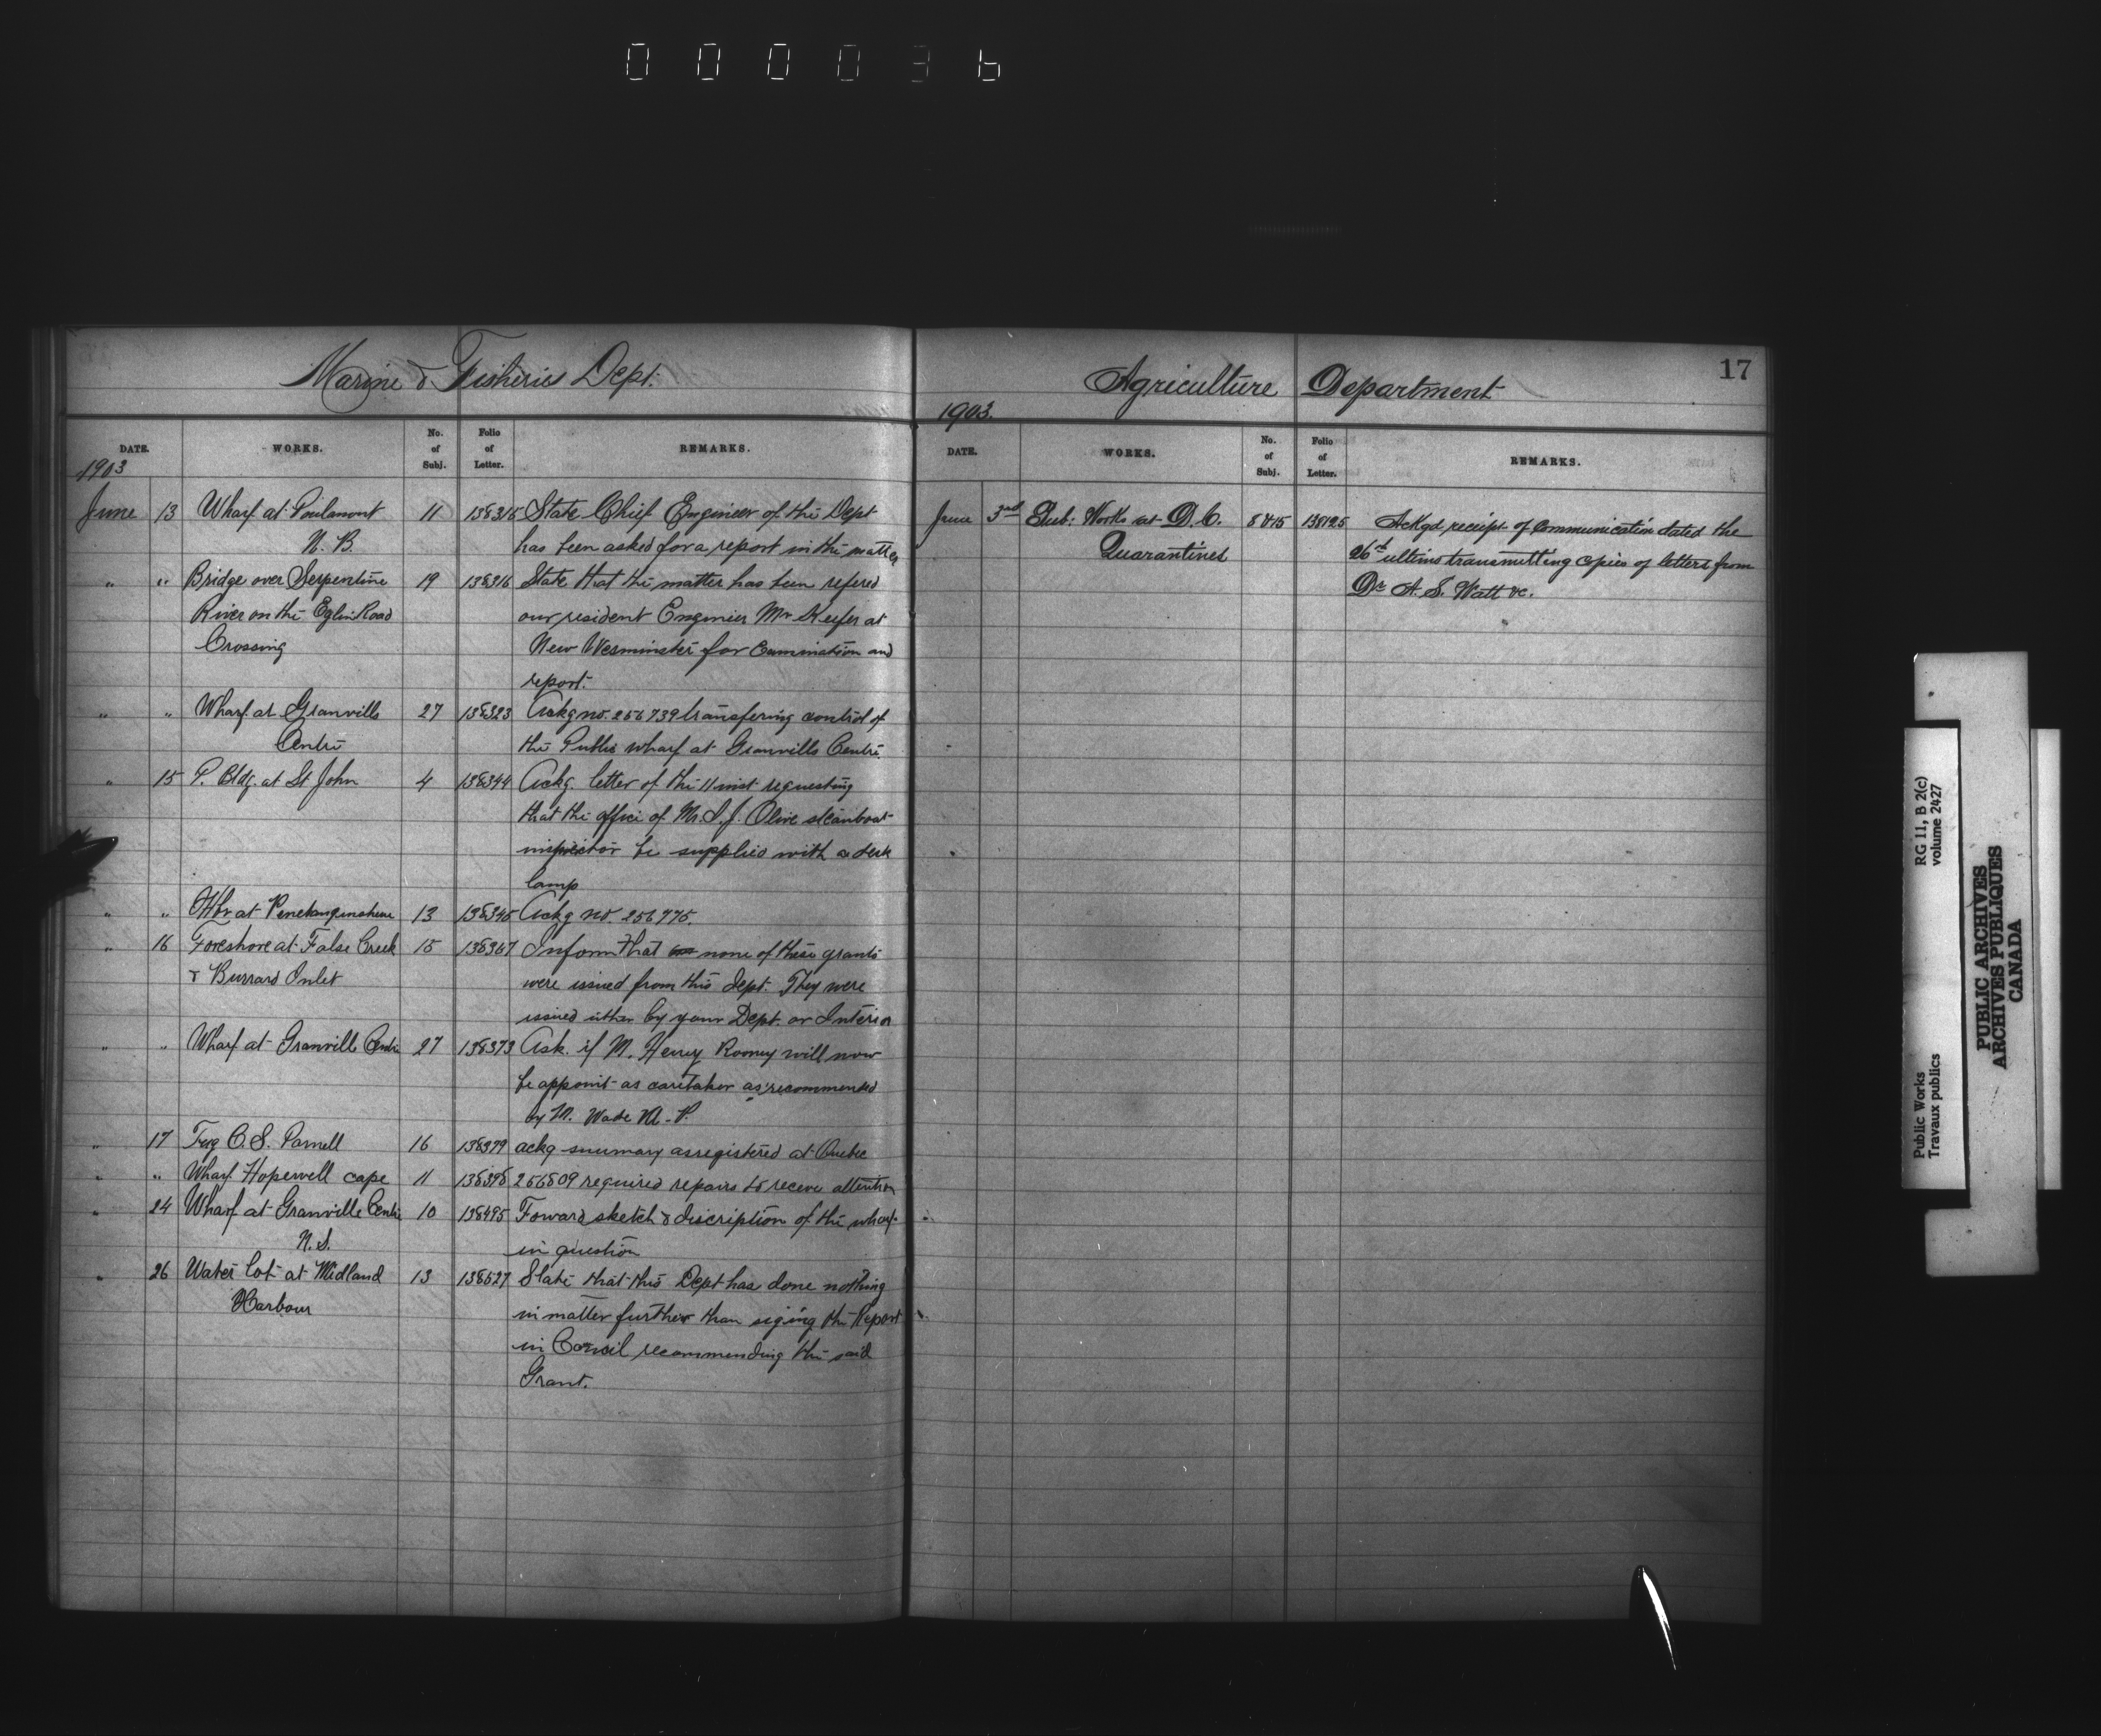 000036
Marine & Fisheries Dept.
DATE. WORKS. No. of Subj. Folio of Letter. REMARKS.
1903
June 13 Wharf at N. B. 11 138315 State Chief Engineer of the Dept
has been asked for a report in the matter
" " Bridge over Serpentine 19 138316 State that the matter has been refered
River on the Eglin Road our resident Engineer Mr Keefer at
Crossing New Wesminster for Examination and
report.
" " Wharf at Granville 27 138323 Ackg no. 256739 transfering control of
Centre the Public wharf at Granville Centre.
" 15 P. Bldg. at St John 4 138344 Ackg. letter of the 11 inst requesting
that the office of Mr. I. J. Olive steamboat
inspector be supplied with a desk
lamp
" " Hbr at Penetanguishene 13 138345 Ackg no. 256775.
" 16 Foreshore at False Creek 15 138367 Inform that none of these grants
& Burrard Inlet were issued from this Dept. They were
issued either by your Dept. or Interior
" " Wharf at Granville Centre 27 138373 Ask. if M. Henry Rooney will now
be appoint as caretaker as recommended
by M. Wade M. P.
" 17 Tug C. S. Parnell 16 138379 ackg summary as registered at Quebec
" " Wharf Hopewell cape 11 138398 256809 required repairs to receve attention
" 24 Wharf at Granville Centre 10 138495 Foward sketch & discription of the wharf
N. S. in question
" 26 Water lot at Midland 13 138527 State that this Dept has done nothing
Harbour in matter further than signing the Report
in Concil recommending the said
Grant.
17
Agriculture Department
1903.
DATE. WORKS. No. of Subj. Folio of Letter. REMARKS.
June 3rd Sub: Works at Q. C. 8415 138125 Ackgd receipt of Communication dated the
Quarantines 26th ultimo transmitting copies of letters from
Dr A. S. Watt &c.
Public Works RG 11, B 2(c)
Travaux publics volume 2427
PUBLIC ARCHIVES
ARCHIVES PUBLIQUES
CANADA